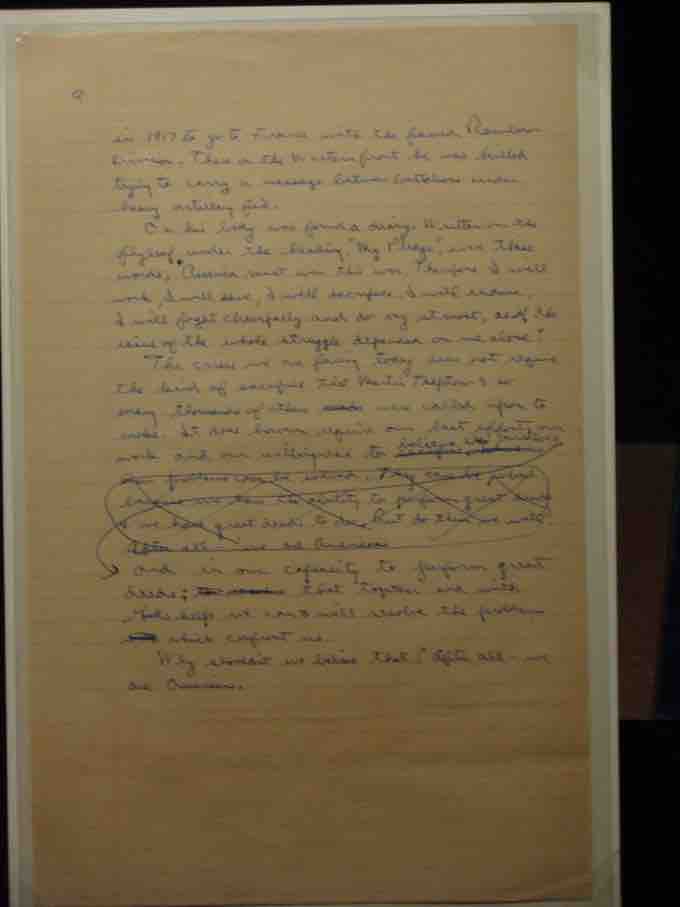 9
in 1917 to go to France with the famed Rainbow
Division. There on the Western front he was killed
trying to carry a message between battalions under
heavy artillery fire.
On his body was found a diary. Written on the
flyleaf, under the heading, "My Pledge", were these
words, "America must win this war. Therefore I will
work, I will save, I will sacrifice, I will endure,
I will fight cheerfully and do my utmost, as if the
issue of the whole struggle depended on me alone."
The crises we are facing today does not require
the kind of sacrifice that Martin Treptow & so
many thousands of others were called upon to
make. It does however require our best effort, our
work and our willingness to believe in ourselves
our problems can be solved. They can be solved
because we have the ability to perform great deeds
& we have great deeds to do. But do them we will.
After all - we are Americans
and in our capacity to perform great
deeds; to that together and with
Gods help we can & will resolve the problems
which confront us.
Why shouldn't we believe that? After all - we
are Americans.